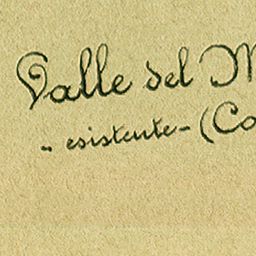 Valle del M
" esistente - (Co